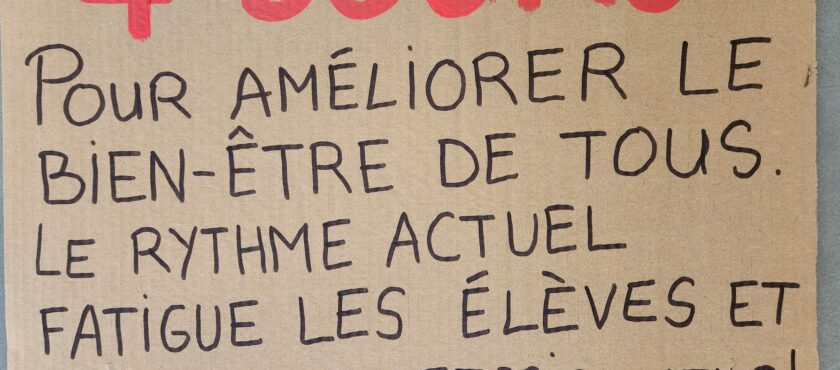 POUR AMÉLIORER LE
BIEN-ÊTRE DE TOUS.
LE RYTHME ACTUEL
FATIGUE LES ÉLÈVES ET